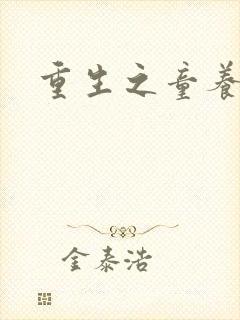 重生之童养
金泰浩